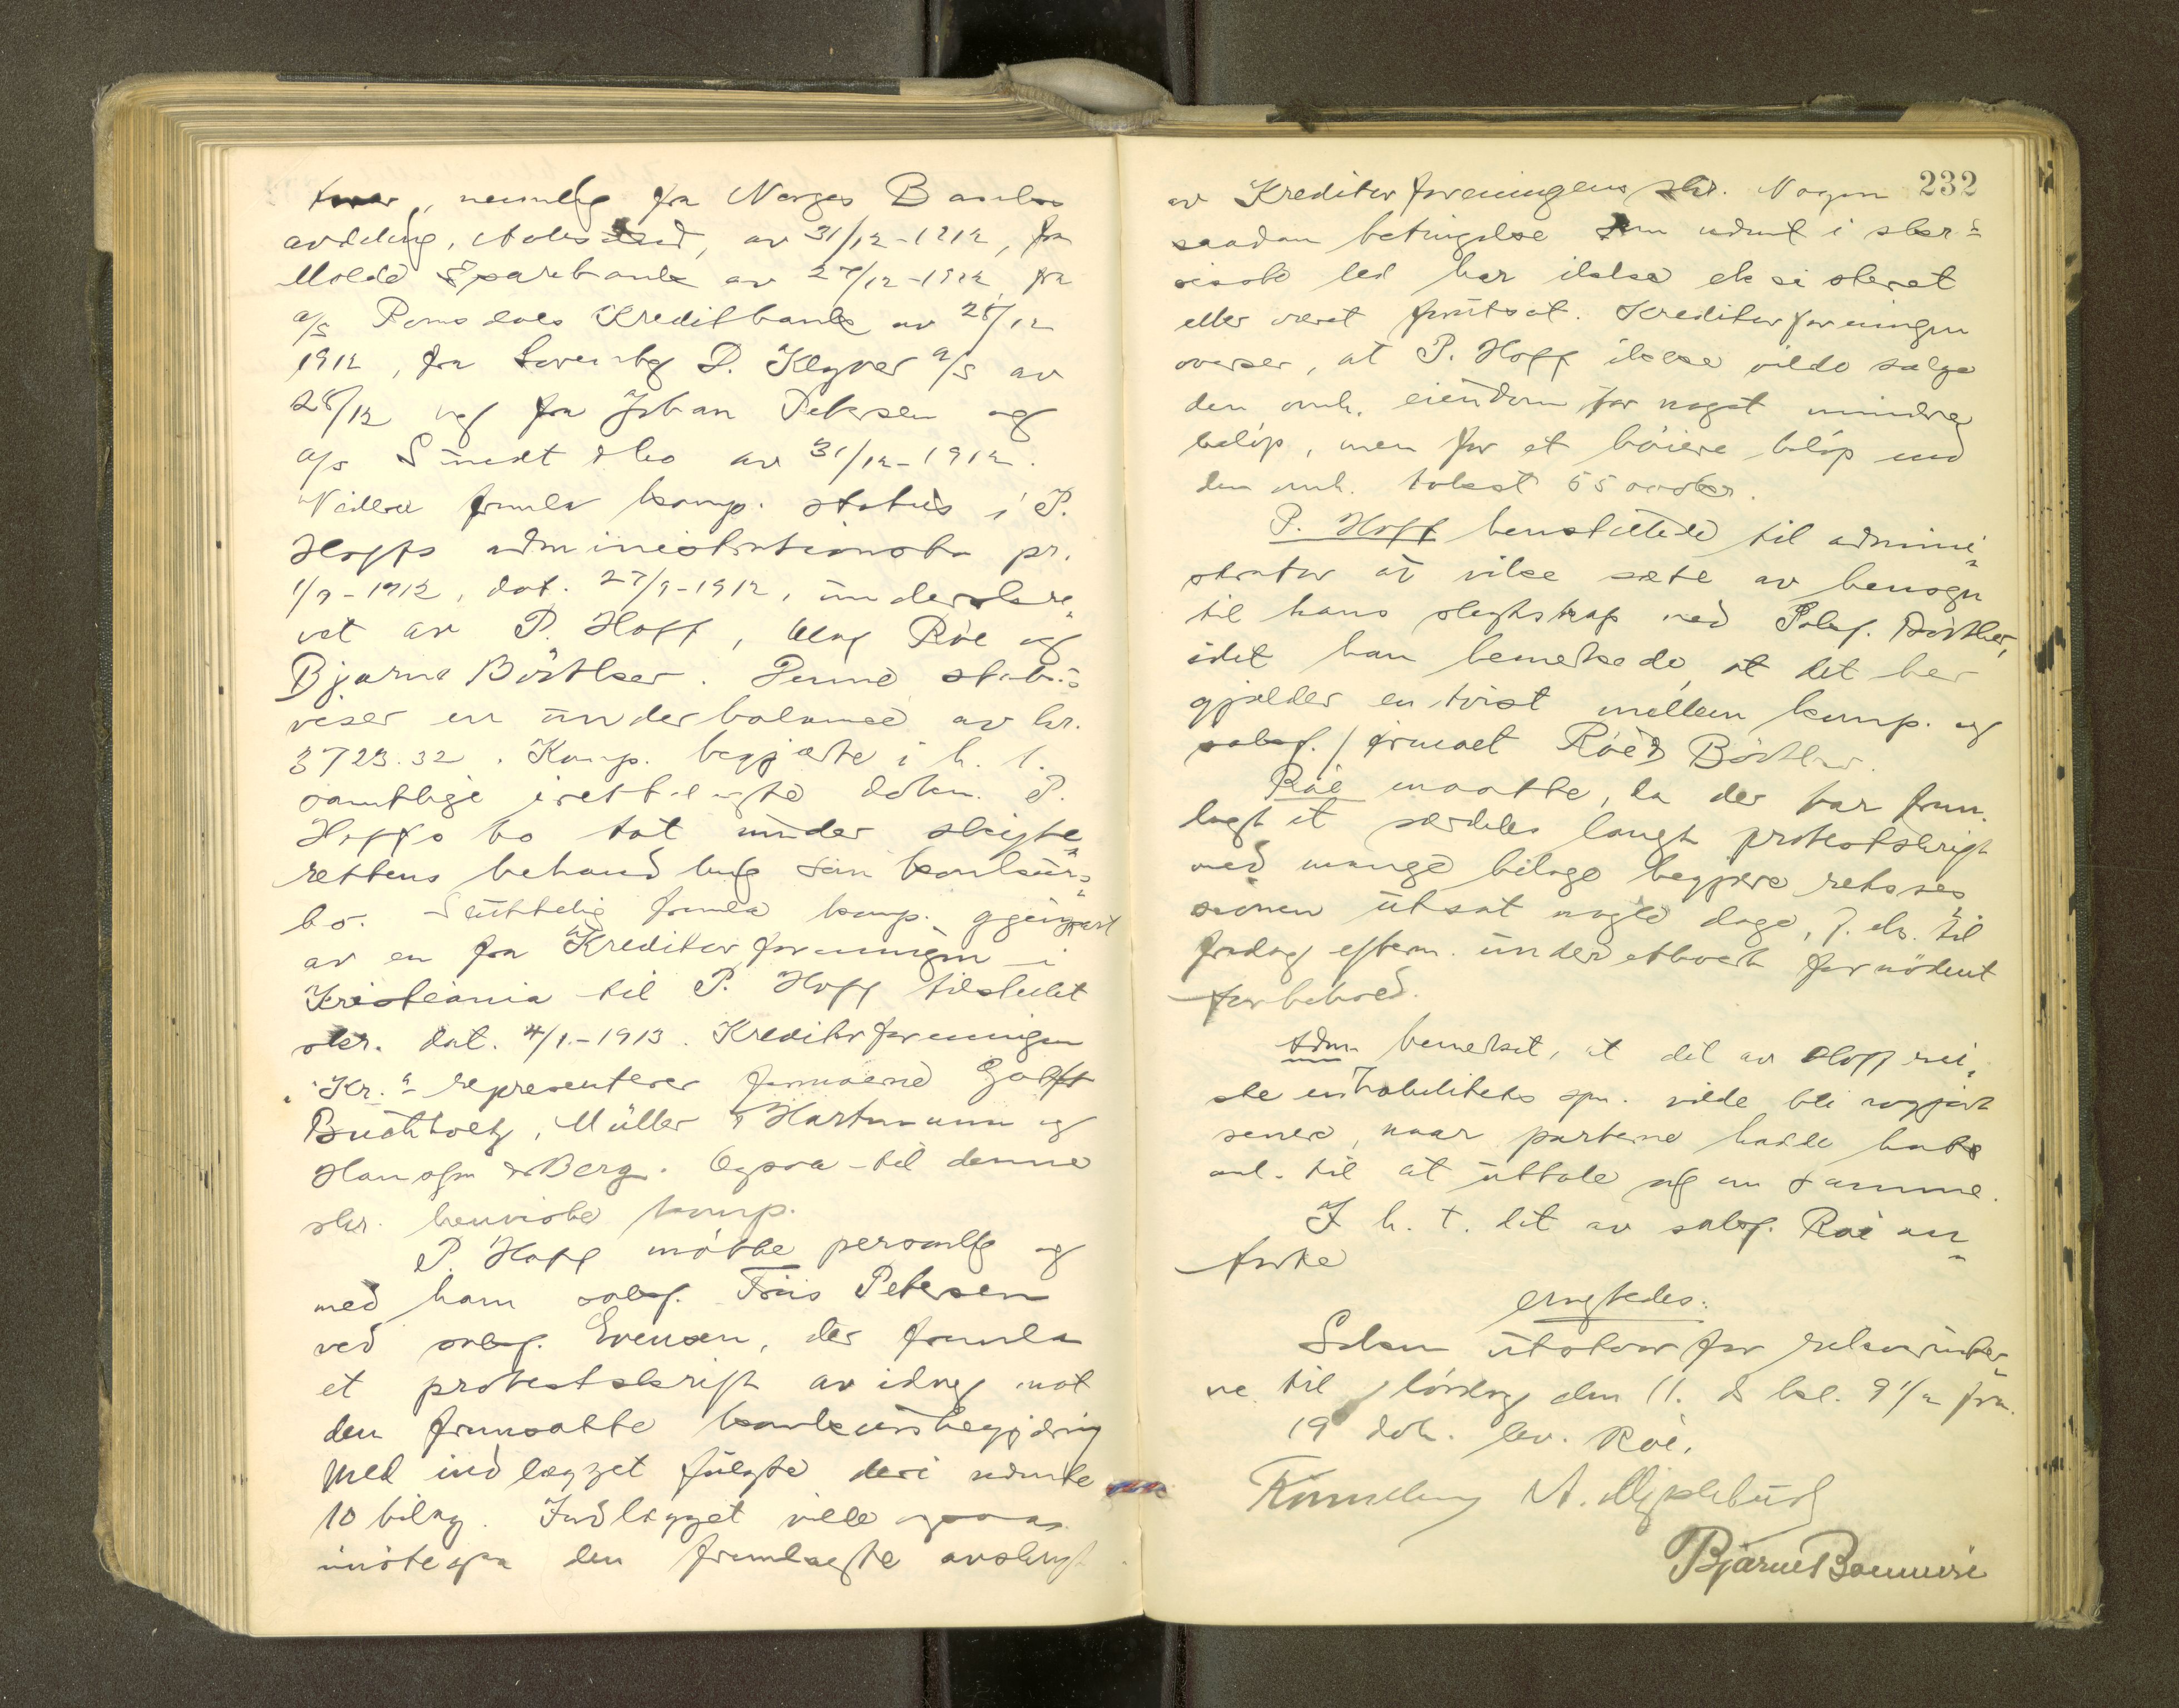 , nemlig fra Norges Banks
avdeling, Aalesund, av 31/12-1912, fra
Molde Sparebank av 27/12-1912, fra
a/s Romsdals Kreditbank av 28/12
1912, fra D. Klyver a/s av
28/12 og fra Johan Petersen og
a/s Sundt & Co av 31/12-1912.
Videre fremla komp. status i P.
Hoffs administrationsbo pr.
1/9-1912, dat. 27/9-1912, underskre-
vet av P. Hoff, Olaf Roe og
Bjarne Böstker. Denne status
viser en underbalance av kr.
3723.32. Komp. begjærte i h. t.
samtlige irettelagte dokm. P.
Hoffs bo tat under skifte-
rettens behandling som konkurs-
bo. Sluttelig fremla komp. gjenpart
av en fra Kreditorforeningen i
Kristiania til P. Hoff tilstillet
skr. dat. 4/1-1913. Kreditorforeningen
i Kr.a representerer firmaerne
Buchholtz, Müller & Hartmann og
& Berg. Ogsaa til denne
skr. henviste komp.
P. Hoff møtte personlig og
med ham sakf. Friis Petersen
ved sakf. Evensen, der fremla
et protestskrift av idag mot
den fremsatte konkursbegjæring
Med indlægget fulgte deri nævnte
10 bilag. Indlægget vilde ogsaa
den fremlagte avskrift
232
av Kreditorforeningens skr. Nogen
saadan betingelse som nævnt i skr.s
sidste led har ikke eksisteret
eller været forutsat. Kreditorforeningen
overser, at P. Hoff ikke vilde sælge
den omh. eiendom for noget mindre
beløp, men for et høiere beløp end
den omh. takst 55000 kr.
P. Hoff henstillede til admini-
strator at vike sæte av hensyn
til hans slegtskap med Sakf. Böstker,
idet han bemerkede, at det her
gjælder en tvist mellem komp. og
sakf.firmaet Roe & Böstker.
Roe maatte, da der var frem-
lagt et særdeles langt protestskrift
med mange bilage begjære retsses-
sionen utsat nogle dage, f. eks. til
fredag efterm. under ethvert fornødent
forbehold.
Adm. bemerket, at det av Hoff rei-
ste inhabilitets spm. vilde bli avgjort
senere, naar parterne hadde hat
anl. til at uttale sig om samme.
I h. t. det av sakf. Roe an-
førte
eragtedes:
Saken utstaar for
ne til lördag den 11. ds kl. 9 1/2 fm.
19 dok. lev. Roe.
A.
Bjarne